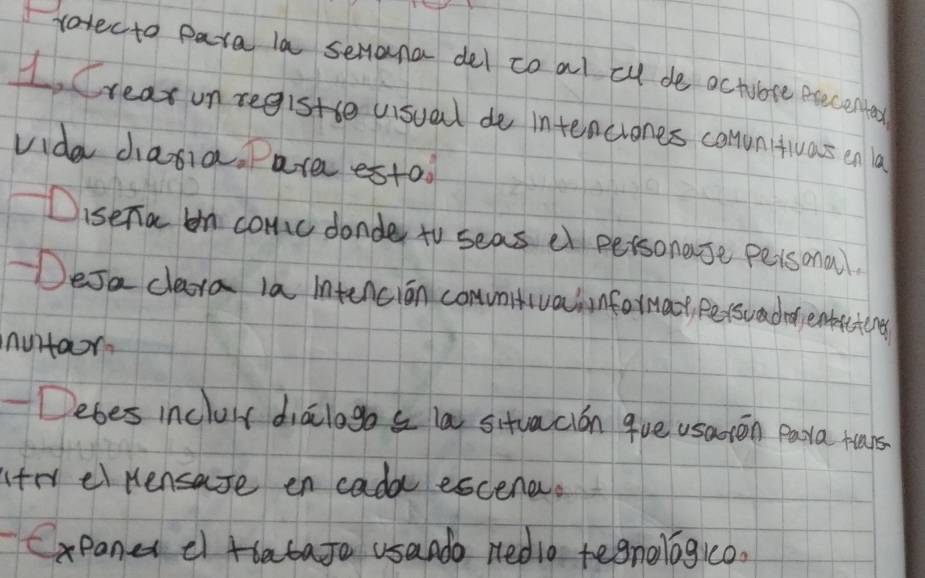 Protecto para la semana del 20 al 24 de octubre precentar
1. Crear un registro visual de intenciones comunitivas en la
vida diaria. Para esto:
-Diseña un comic donde tu seas el personaje personal.
-Deja clara la intención comunitiva: informar, persuadir, entretener
invitar.
-Debes incluir diálogo y la situación que usarón para trans
itir el mensaje en cada escena.
-Expaner el trabajo usando medio tegnológico.